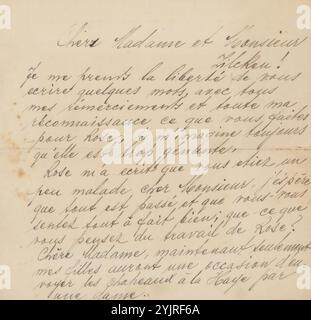 Chère Madame et Monsieur
Zilcken!
Je me prends la liberté de vous
ecrire quelques mots, avec tous
mes rémerciements et toute ma
reconnaissance ce que vous faites
pour Rose, je m'imagine toujours
qu'elle est trop gênante.
Rose m'a écrit que vous etiez un
peu malade, cher Monsieur, j'éspère
que tout est passé et que vous vous
sentez tout à fait bien; que ce que
vous pensez du travail de Rose?
Chère Madame, maintenant seulement
mes filles auront une occasion d'en
voyer les chapeaux à la Haye par
une dame.
alamy
Image ID: 2YJRF6A
www.alamy.com